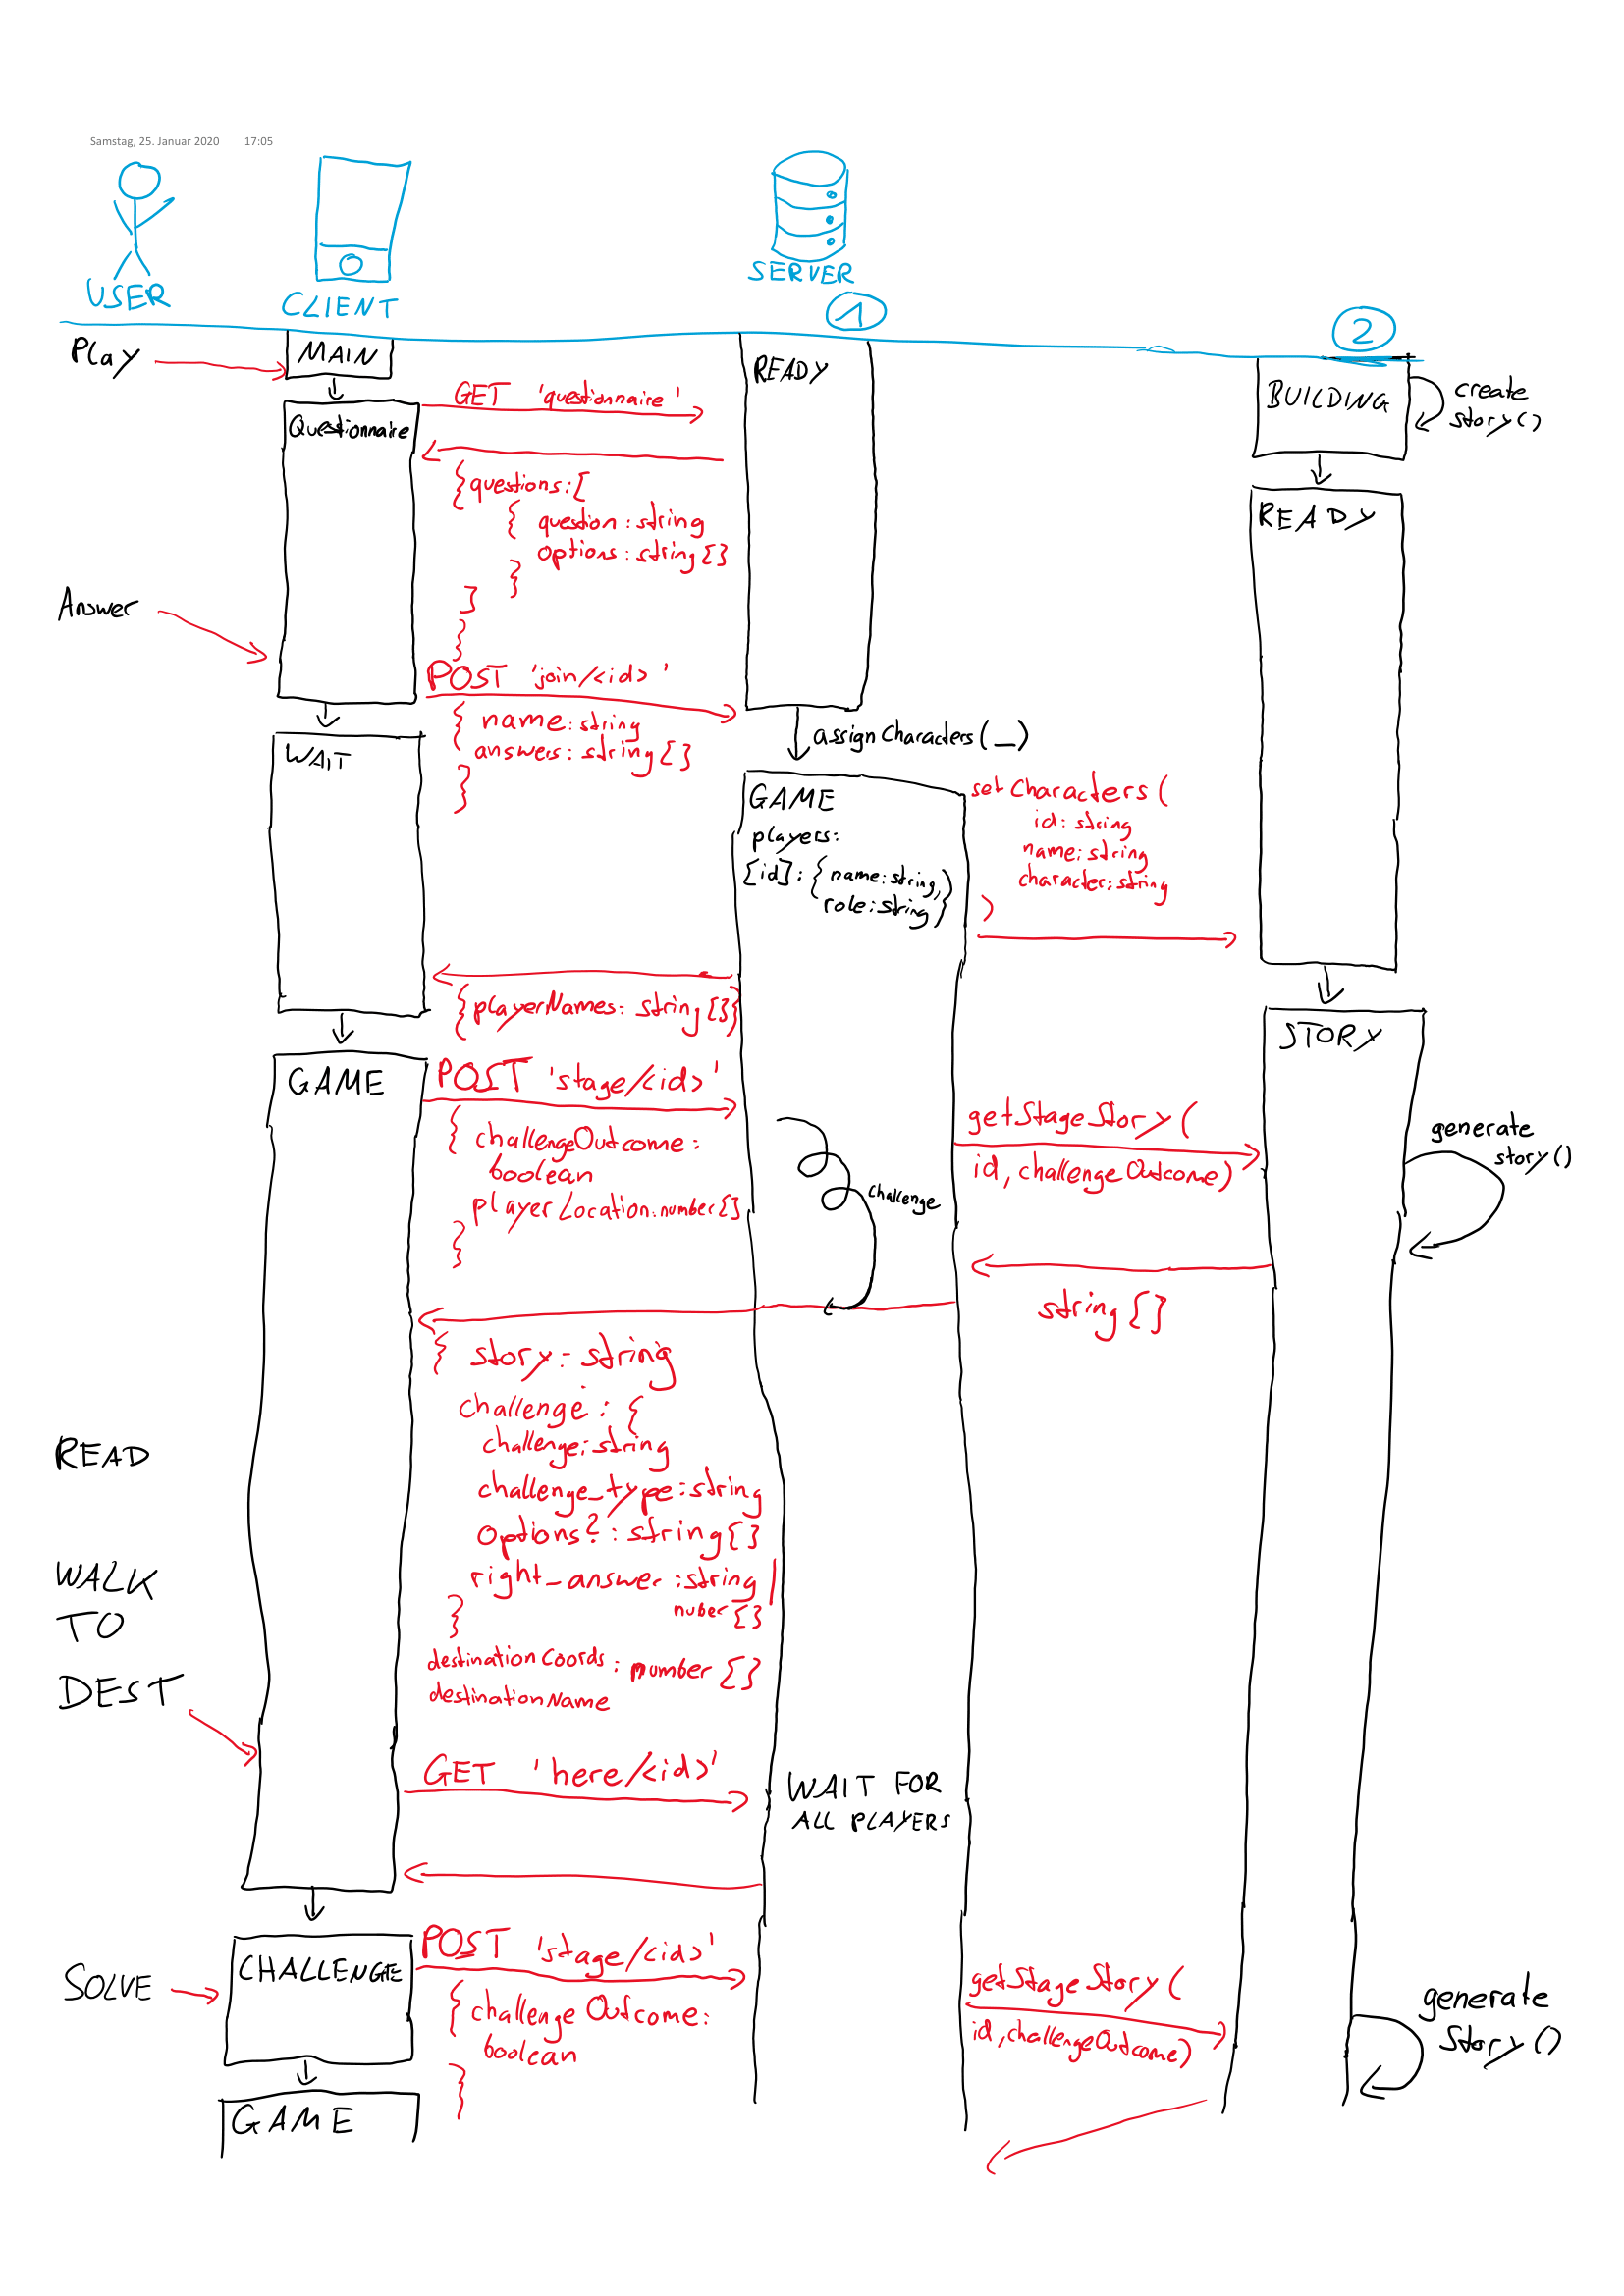 Samstag, 25. Januar 2020 17:05
USER
CLIENT
SERVER
1
2
Play
MAIN
READY
BUILDING
create
story()
GET 'questionnaire'
Questionnaire
{questions:[
{ question: string
options: string[]
}
]
}
READY
Answer
POST 'join/<id>'
{ name: string
answers: string[]
}
assignCharacters(_)
WAIT
GAME
players:
[id]: { name: string,
role: string}
setCharacters(
id: string
name: string
character: string
)
{playerNames: string[]}
STORY
GAME
POST 'stage/<id>'
{ challengeOutcome:
boolean
playerLocation: number[]
}
challenge
getStageStory(
id, challengeOutcome)
generate
story()
string[]
{ story: string
challenge: {
challenge: string
challenge_type: string
options?: string[]
right_answer: string |
nuber[]
}
destinationCoords: number[]
destinationName
READ
WALK
TO
DEST
GET 'here/<id>'
WAIT FOR
ALL PLAYERS
SOLVE
CHALLENGE
POST 'stage/<id>'
{ challengeOutcome:
boolean
}
getStageStory(
id, challengeOutcome)
generate
story()
GAME